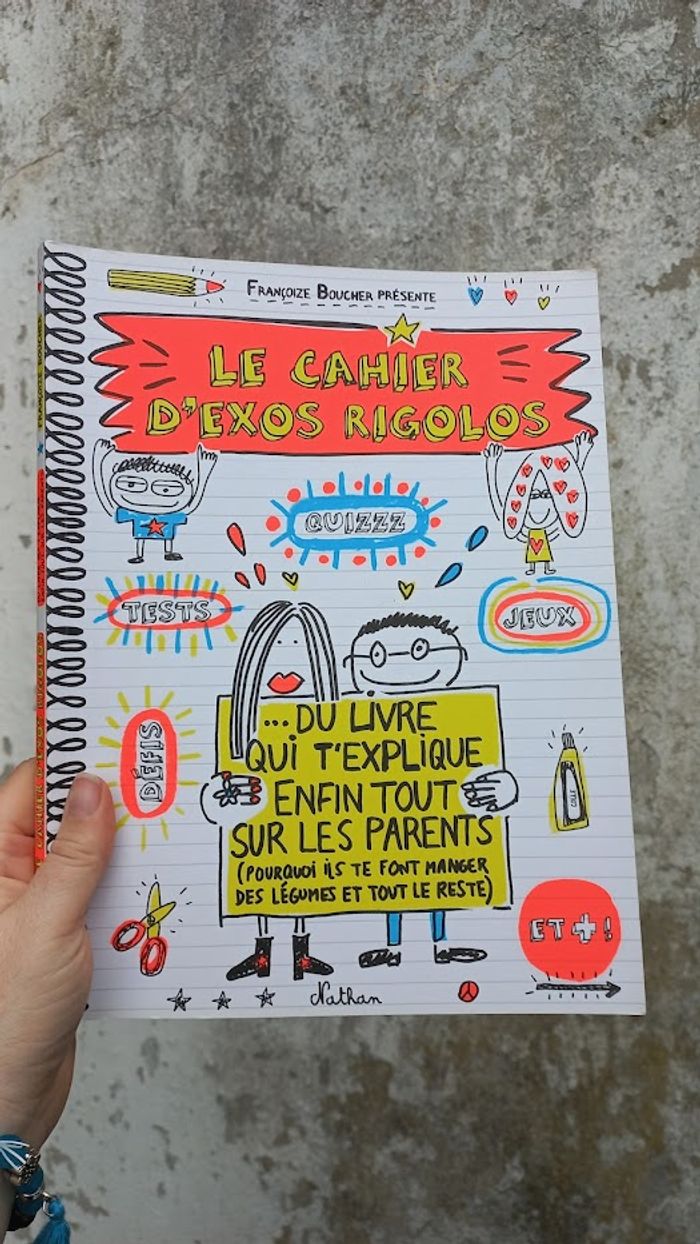 FRANÇOIZE BOUCHER PRÉSENTE
LE CAHIER
D'EXOS RIGOLOS
QUIZZZ
TESTS
JEUX
DÉFIS
...DU LIVRE
QUI T'EXPLIQUE
ENFIN TOUT
SUR LES PARENTS
(POURQUOI ILS TE FONT MANGER
DES LÉGUMES ET TOUT LE RESTE)
COLLE
ET +!
Nathan